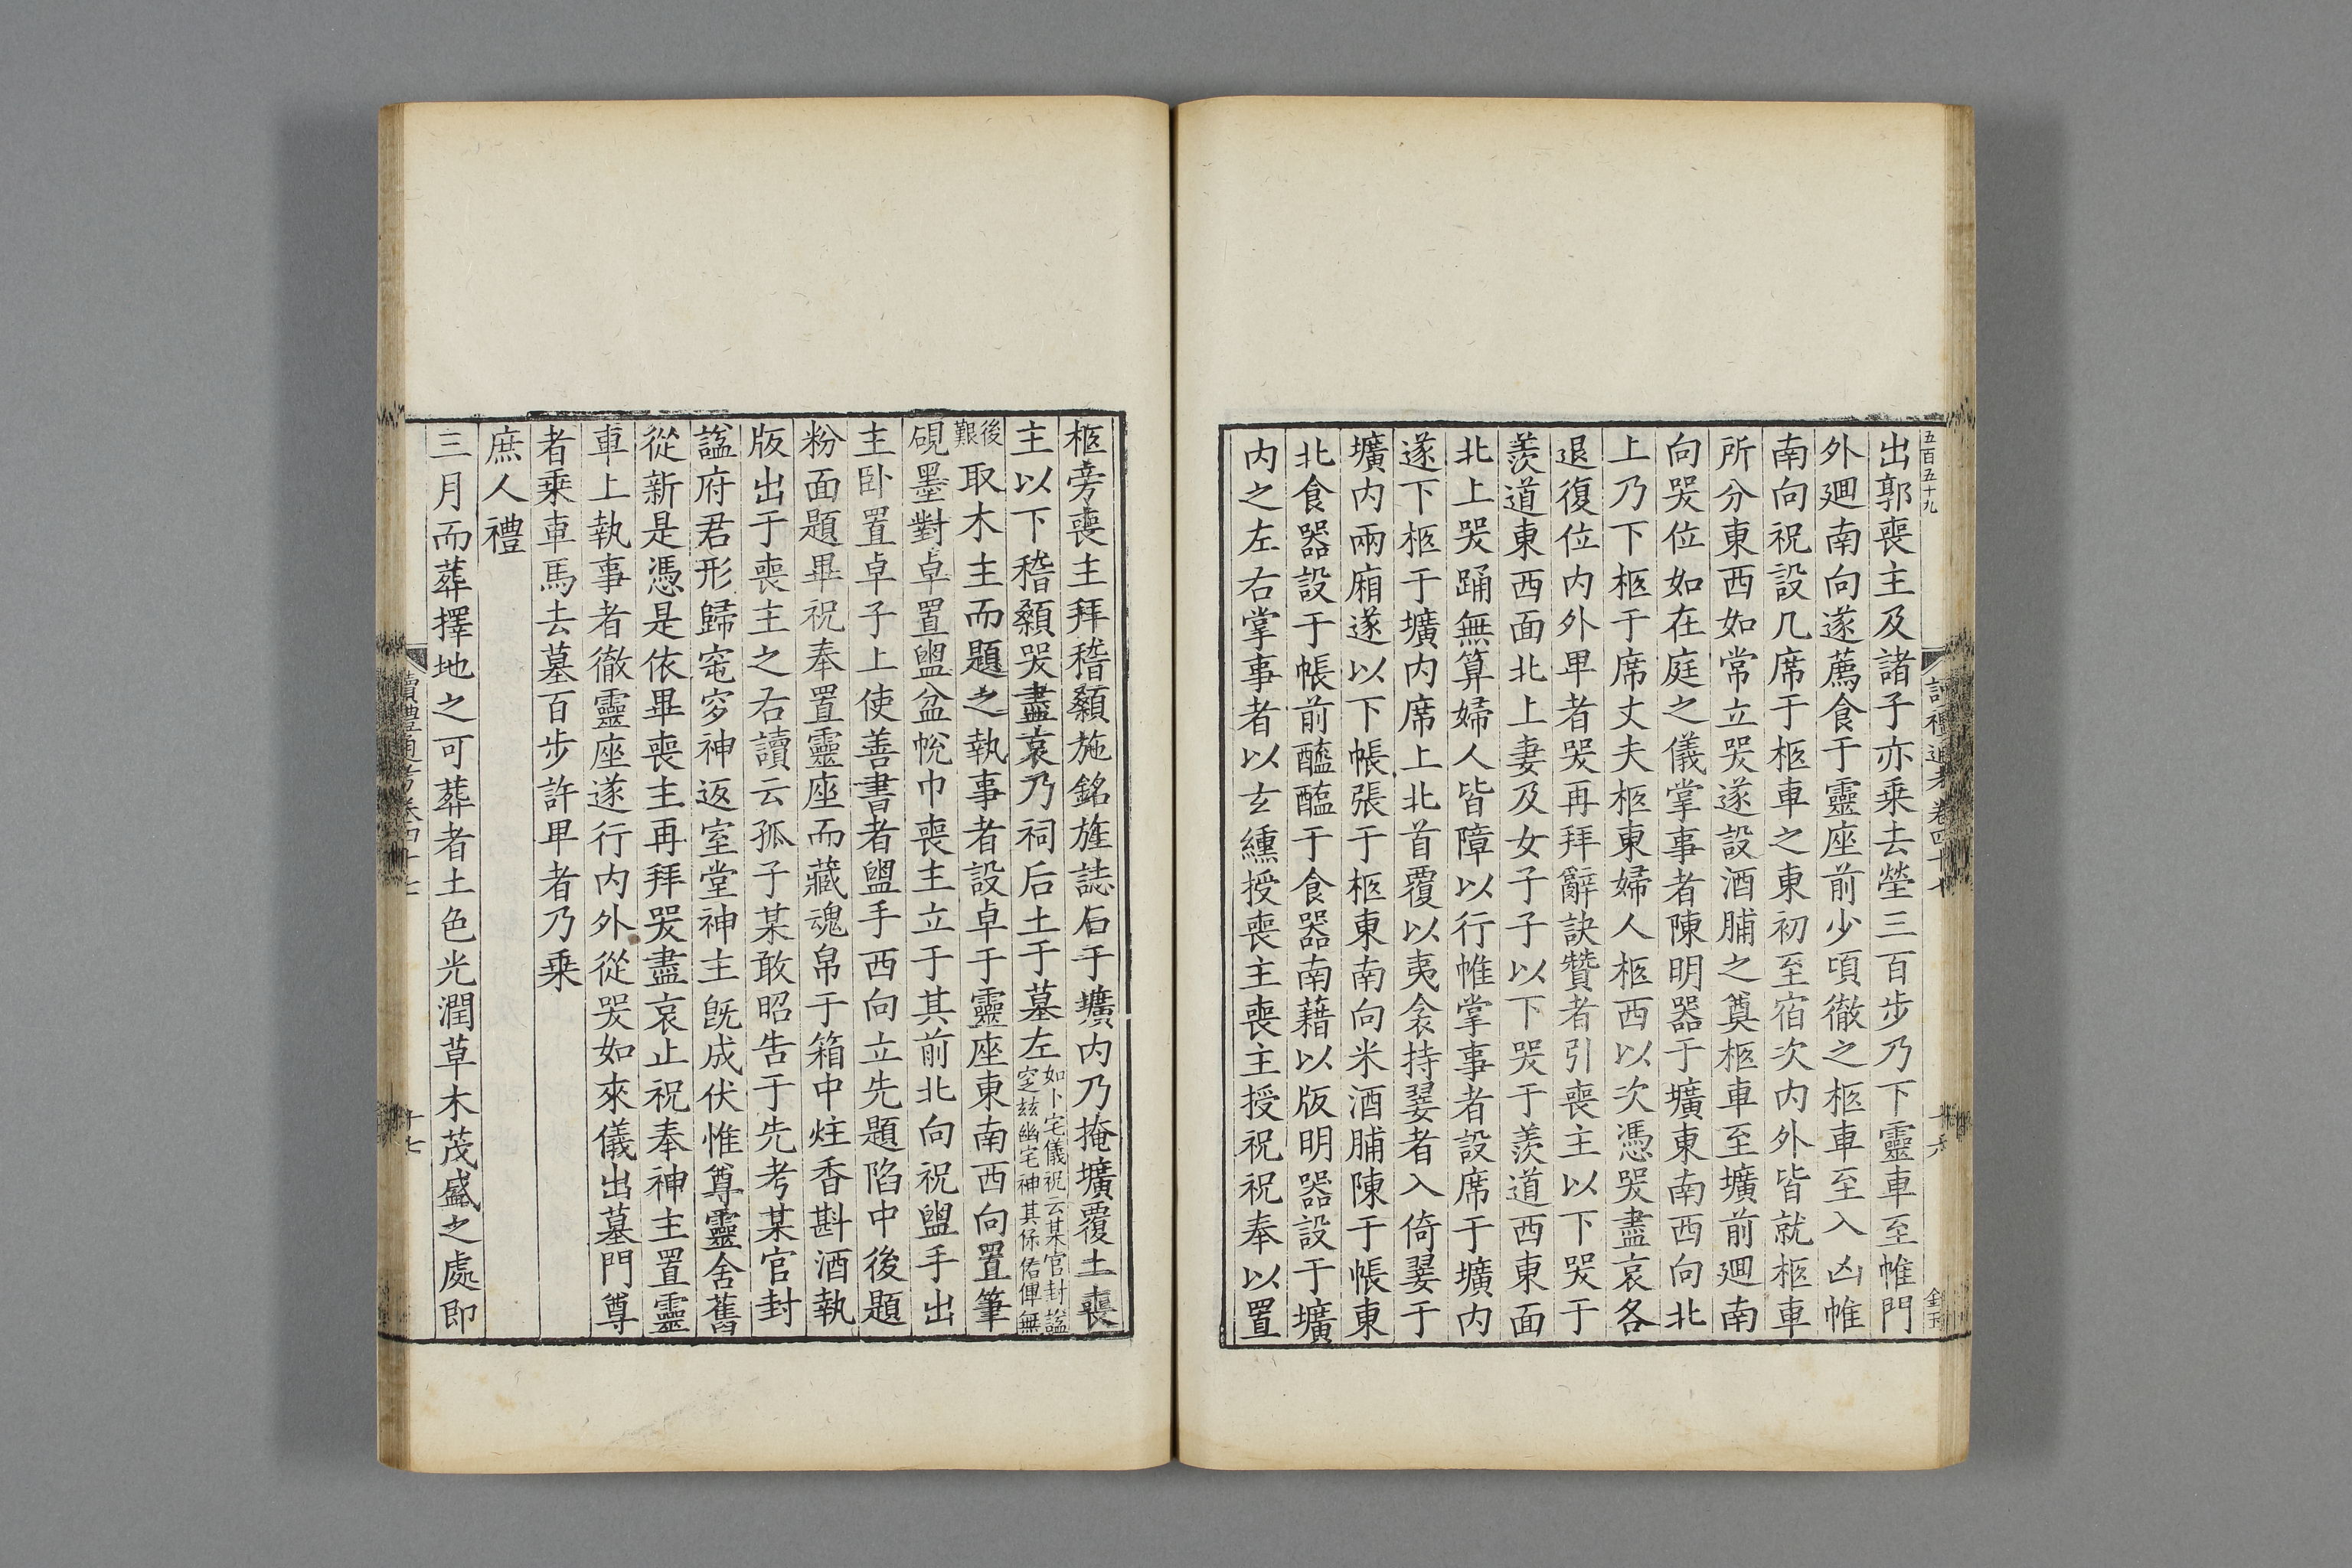 五百五十九
讀禮通考卷四十七
十六
出郭喪主及諸子亦乗去塋三百步乃下靈車至帷門
外廻南向遂薦食于靈座前少頃徹之柩車至入凶帷
南向祝設几席于柩車之東初至宿次内外皆就柩車
所分東西如常立哭遂設酒脯之奠柩車至壙前廻南
向哭位如在庭之儀掌事者陳明器于壙東南西向北
上乃下柩于席丈夫柩東婦人柩西以次憑哭盡哀各
退復位内外卑者哭再拜辭訣贊者引喪主以下哭于
羨道東西面北上妻及女子子以下哭于羨道西東面
北上哭踊無算婦人皆障以行帷掌事者設席于壙内
遂下柩于壙内席上北首覆以夷衾持翣者入倚翣于
壙内兩廂遂以下帳張于柩東南向米酒脯陳于帳東
北食器設于帳前醯醢于食器南藉以版明器設于壙
内之左右掌事者以玄纁授喪主喪主授祝祝奉以置
柩旁喪主拜稽顙施銘旌誌石于壙内乃掩壙覆土喪
主以下稽顙哭盡哀乃祠后土于墓左如卜宅儀祝云某官封諡
窆玆幽宅神其保佑俾無
後艱取木主而題之執事者設卓于靈座東南西向置筆
硯墨對卓置盥盆帨巾喪主立于其前北向祝盥手出
主卧置卓子上使善書者盥手西向立先題陷中後題
粉面題畢祝奉置靈座而藏魂帛于箱中炷香斟酒執
版出于喪主之右讀云孤子某敢昭告于先考某官封
諡府君形歸窀穸神返室堂神主旣成伏惟尊靈舍舊
從新是憑是依畢喪主再拜哭盡哀止祝奉神主置靈
車上執事者徹靈座遂行内外從哭如來儀出墓門尊
者乗車馬去墓百步許卑者乃乗
庶人禮
三月而葬擇地之可葬者土色光潤草木茂盛之處即
讀禮通考卷四十七
十七